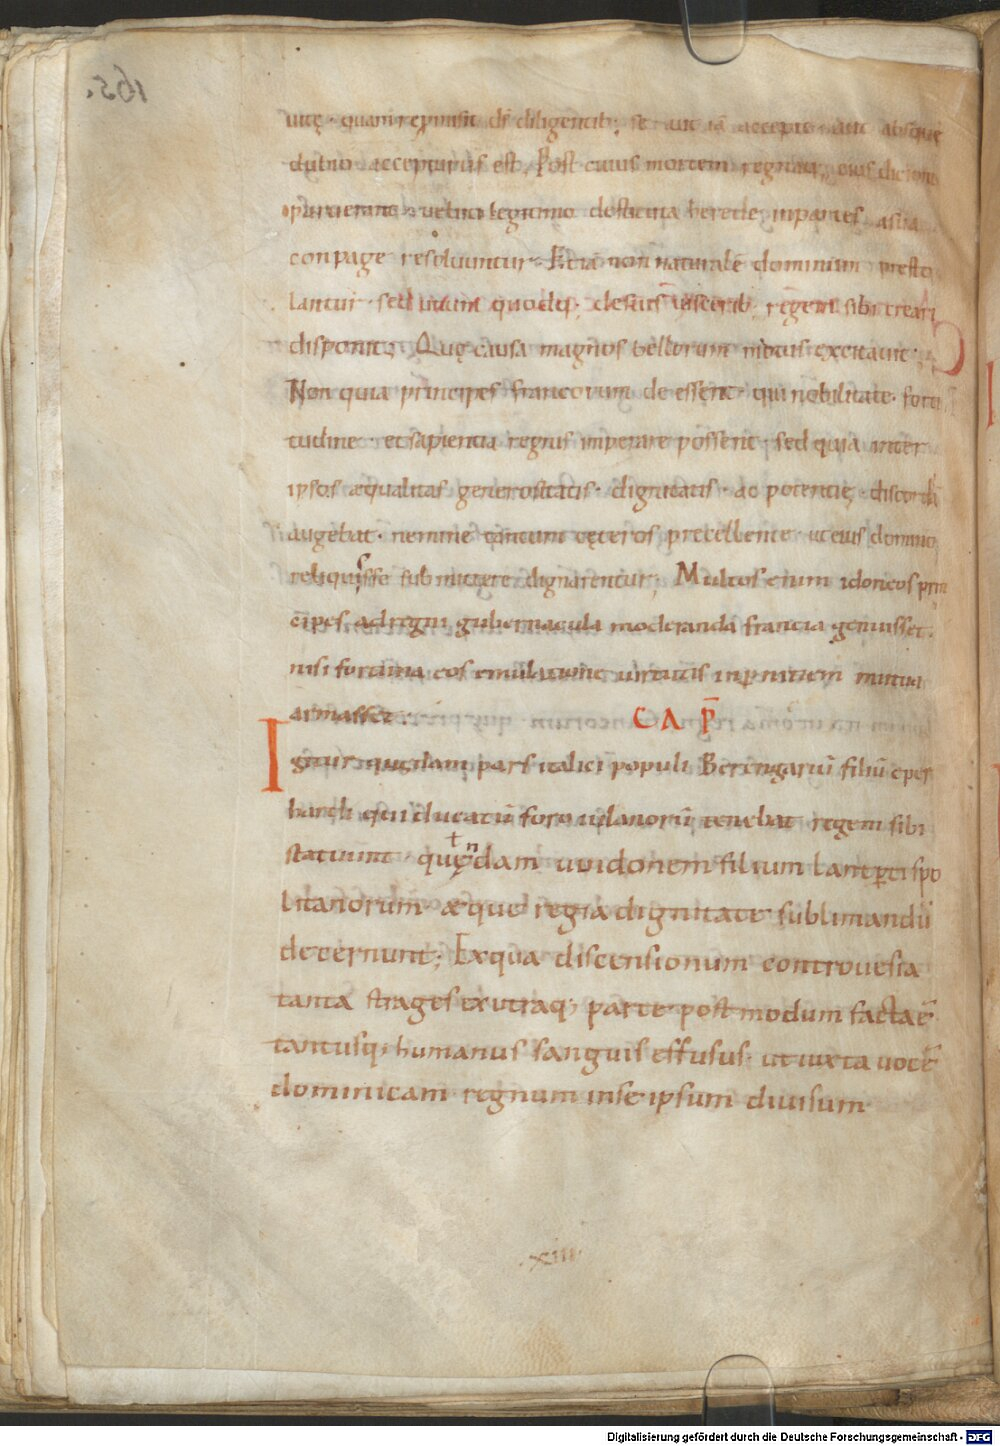 uitę · quam repmisit ds̄ diligentib; se aut iā accepit · aut absque
dubio accepturus est. Post cuius mortem regna quę eius dicioni
paruerant · veluti legitimo destituta herede in partes a sua
conpage resoluuntur · Et iā non naturalē dominum presto
lantur · sed unum quodq; de suis uisceribus regem sibi creari
disponit; Quę causa magnos bellorum motus excitauit ·
Non quia principes francorum deessent · qui nobilitate · forti
tudine · et sapientia regnis imperare possent · sed quia inter
ipsos æqualitas generositatis · dignitatis · ac potentię discordiā
augebat · nemine tantum cęteros precellente · ut eius dominio
reliqui se se submittere dignarentur; Multos enim idoneos prin
cipes ad regni gubernacula moderanda francia genuisset ·
nisi fortuna eos emulatione uirtutis in pnitiem mutua
armasset · CAP̄
Igitur quędam pars italici populi Berengariū filiū eper
hardi qui ducatū foro iulanorū tenebat regem sibi
statuunt · quędam uuidonem filium lantperti spo
litanorum · æque regia dignitate sublimandū
decernunt; Ex qua discensionum controuesia
tanta strages ex utraq; parte postmodum facta ē
tantusq; humanus sanguis effusus · ut iuxta uocē
dominicam regnum in se ipsum diuisum
xiii
165.